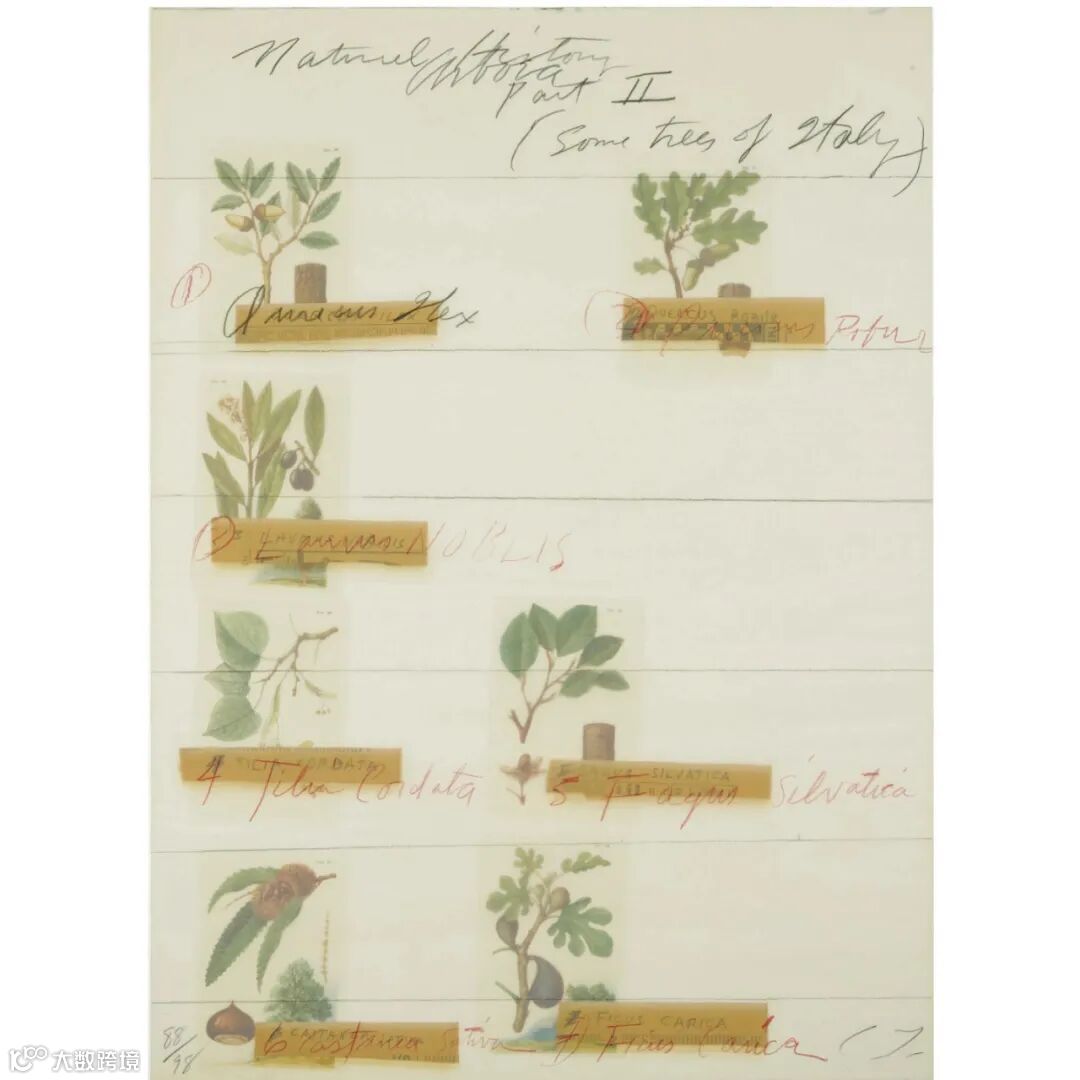 Natural History
Part II
(Some trees of Italy)
1
Quercus Ilex
2 Quercus Robur
QUERCUS ROBUR
3 Laurus NOBLIS
4 Tilia Cordata
TILIA CORDATA
5 Fagus Silvatica
SILVATICA
6 Castanea Sativa
7) Ficus Carica
FICUS CARICA
88/98
大数跨境